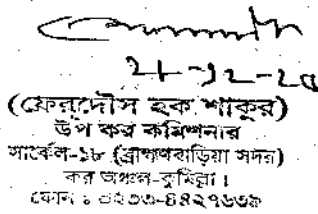 ২৮-১২-২০
(ফেরদৌস হক শাকুর)
উপ কর কমিশনার
সার্কেল-১৮ (ব্রাহ্মণবাড়িয়া সদর)
কর অঞ্চল-কুমিল্লা।
ফোন : ০২৩৩-৪৪২৭৬৩৯